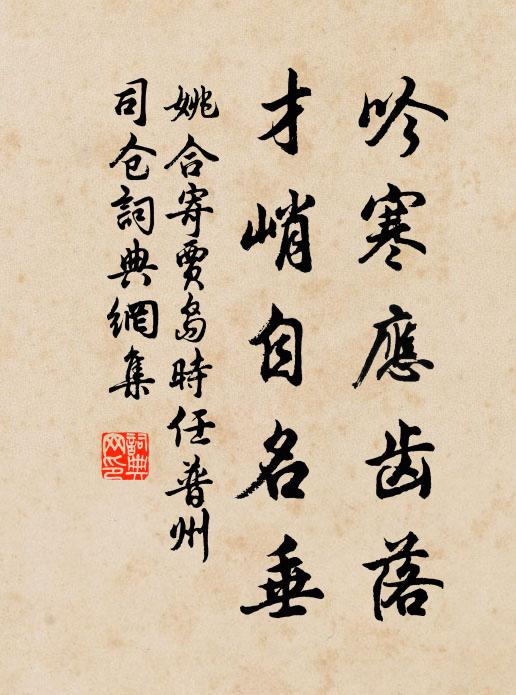 吟寒應齿落
才峭自名垂
姚合寄贾島時任普州
司仓詞典網集
詞典
网印